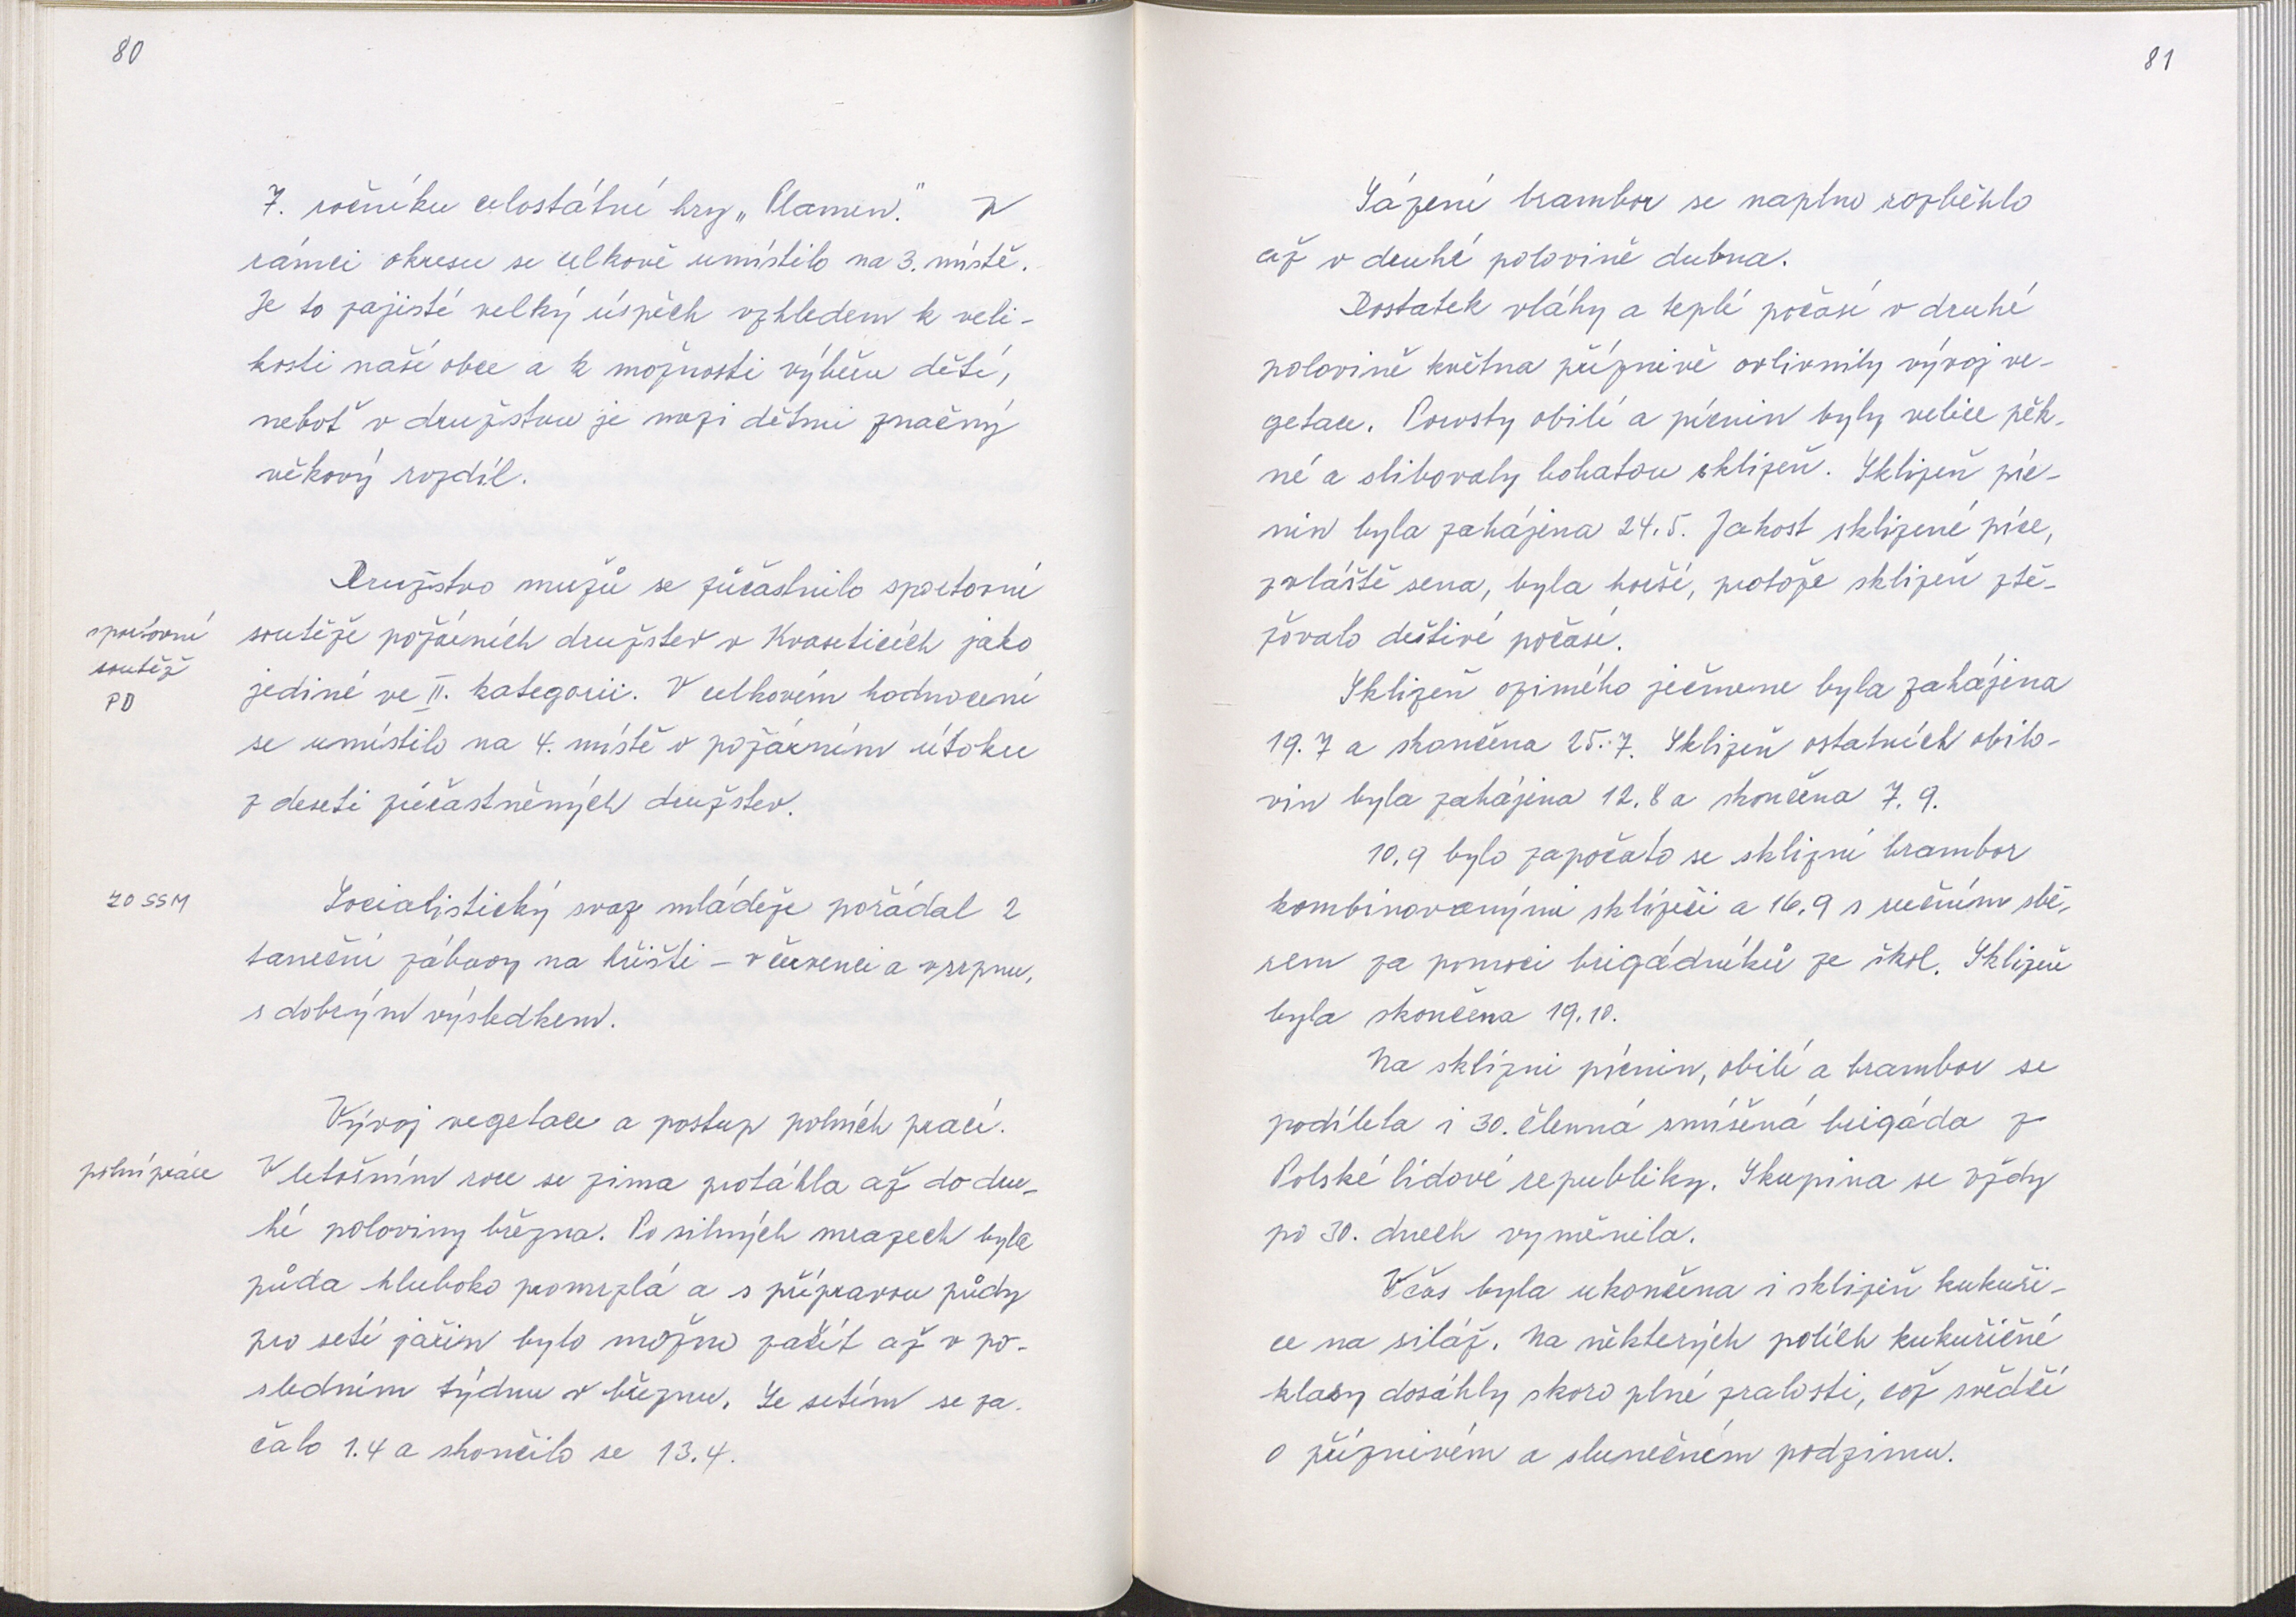 80
7. ročníku celostátní hry „Plamen." V
rámci okresu se celkově umístilo na 3. místě.
Je to zajisté velký úspěch vzhledem k veli-
kosti naší obce a k možnosti výběru dětí,
neboť v družstvu je mezi dětmi značný
věkový rozdíl.
Družstvo mužů se zúčastnilo sportovní
sportovní
soutěž
PD
soutěže požárních družstev v Kvaseticích jako
jediné ve II. kategorii. V celkovém hodnocení
se umístilo na 4. místě v požárním útoku
z deseti zúčastněných družstev.
ZO SSM
Socialistický svaz mládeže pořádal 2
taneční zábavy na hřišti – v červenci a v srpnu,
s dobrým výsledkem.
Vývoj vegetace a postup polních prací.
polní práce
V letošním roce se zima protáhla až do dru-
hé poloviny března. Po silných mrazech byla
půda hluboko promrzlá a s přípravou půdy
pro setí jařin bylo možno začít až v po-
sledním týdnu v březnu. Se setím se za-
čalo 1.4 a skončilo se 13.4.
81
Sázení brambor se naplno rozběhlo
až v druhé polovině dubna.
Dostatek vláhy a teplé počasí v druhé
polovině května příznivě ovlivnily vývoj ve-
getace. Porosty obilí a pícnin byly velice pěk-
né a slibovaly bohatou sklizeň. Sklizeň píc-
nin byla zahájena 24.5. Jakost sklizené píce,
zvláště sena, byla horší, protože sklizeň ztě-
žovalo deštivé počasí.
Sklizeň ozimého ječmene byla zahájena
19.7 a skončena 25.7. Sklizeň ostatních obilo-
vin byla zahájena 12.8 a skončena 7.9.
10.9 bylo započato se sklizní brambor
kombinovanými sklízeči a 16.9 s ručním sbě-
rem za pomoci brigádníků ze škol. Sklizeň
byla skončena 19.10.
Na sklizni pícnin, obilí a brambor se
podílela i 30. členná smíšená brigáda z
Polské lidové republiky. Skupina se vždy
po 30. dnech vyměnila.
Včas byla ukončena i sklizeň kukuři-
ce na siláž. Na některých polích kukuřičné
klasy dosáhly skoro plné zralosti, což svědčí
o příznivém a slunečném podzimu.